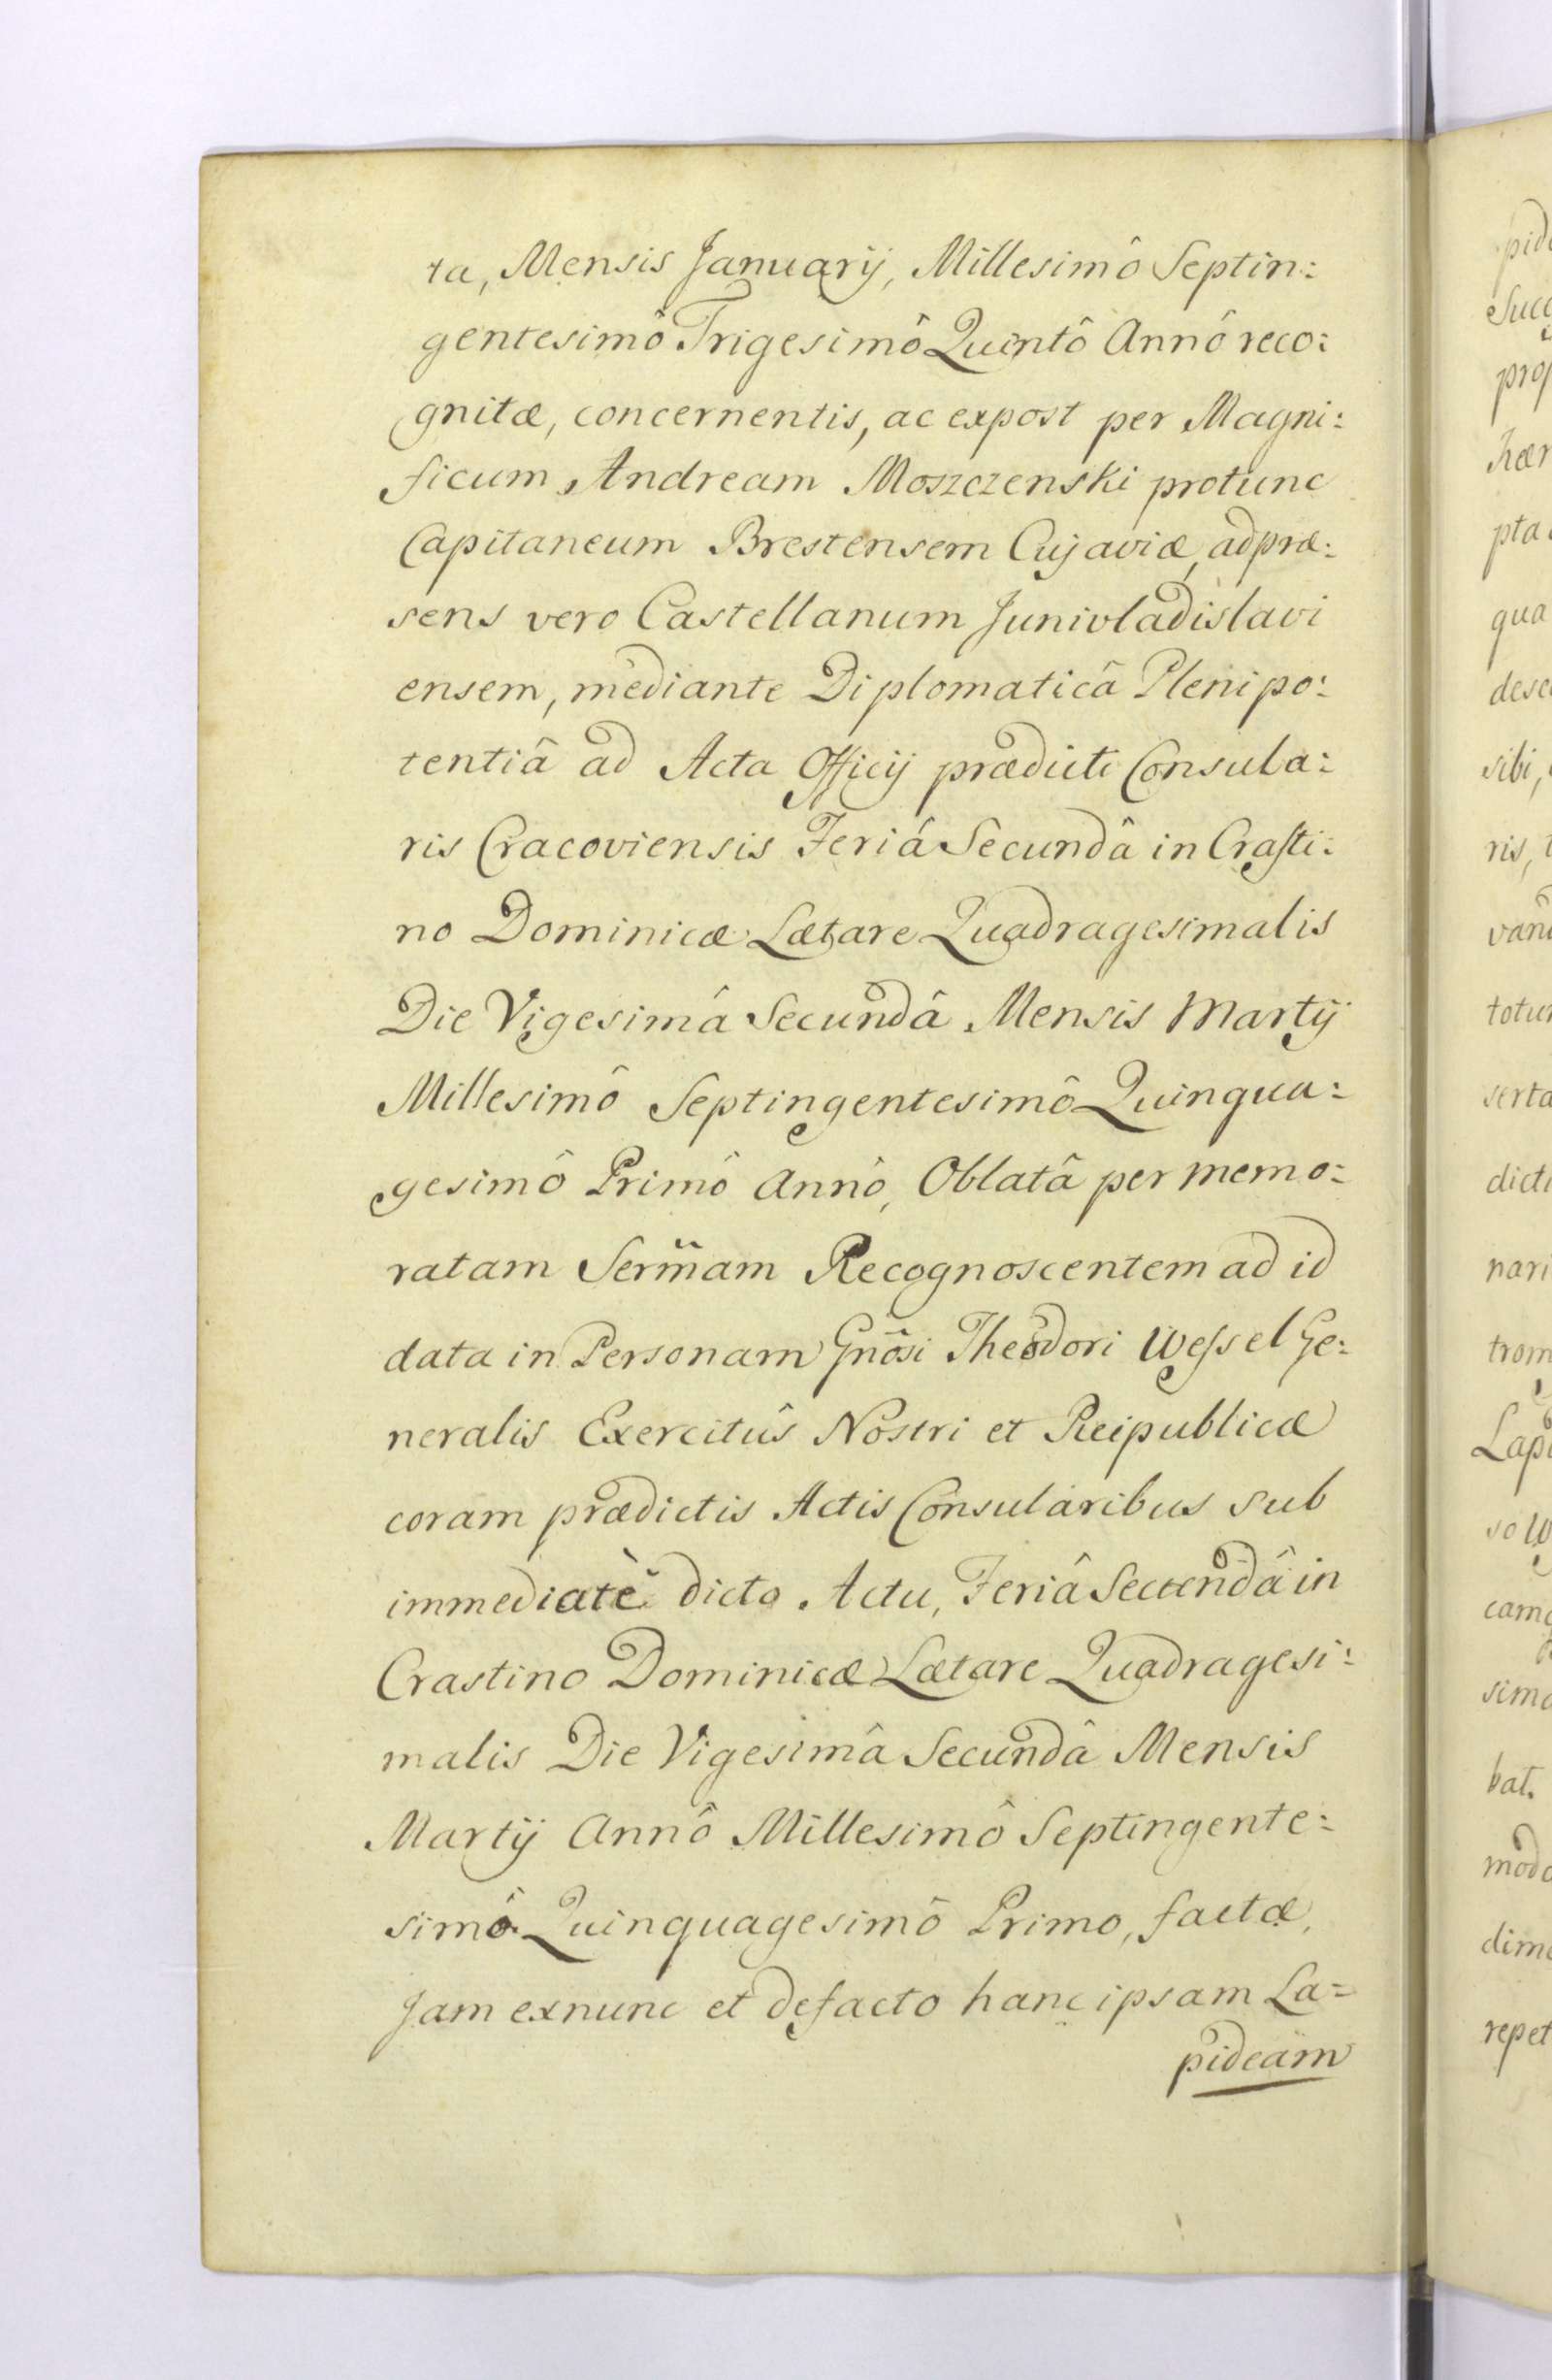 ta, Mensis Januarij, Millesimô Septin:
gentesimô Trigesimô Quintô Annô reco:
gnitæ, concernentis, ac expost per Magni:
ficum Andream Moszczenski protunc
Capitaneum Brestensem Cujaviæ, adpræ:
sens vero Castellanum Junivladislavi
ensem, mediante Diplomaticâ Plenipo:
tentiâ ad Acta Officij prædicti Consula:
ris Cracoviensis Feriâ Secundâ in Crasti:
no Dominicæ Lætare Quadragesimalis
Die Vigesimâ Secundâ Mensis Martij
Millesimô Septingentesimô Quinqua:
gesimô Primô Annô, Oblatâ per memo:
ratam Serm̃am Recognoscentem ad id
data in Personam Gñosi Theodori Wessel Ge:
neralis Exercitûs Nostri et Reipublicæ
coram prædictis Actis Consularibus sub
immediatè dicto Actu, Feriâ Secundâ in
Crastino Dominicæ Lætare Quadragesi:
malis Die Vigesimâ Secundâ Mensis
Martij Annô Millesimô Septingente:
simô Quinquagesimô Primo, factæ,
Jam exnunc et defacto hanc ipsam La=
pideam
pid
Succ
prop
hær
pta
qua
desc
sibi,
ris,
totu
serta
dicti
nari
trom
Lapi
so
simo
bat.
modo
dime
repet